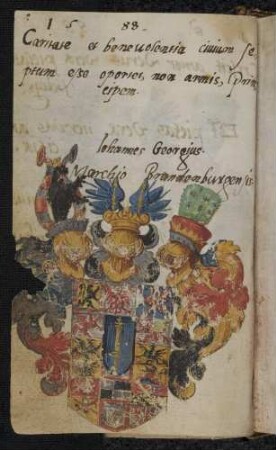 1 5 88.
Caritate et beneuolentia ciuium se
ptum esse oportet, non armis, Prin
cipem.
Iohannes Georgius
Marchio Brandenburgensis